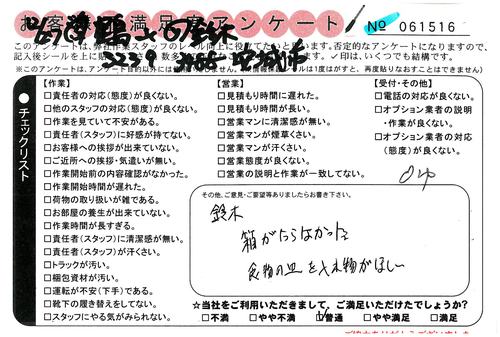 お客様満足度アンケート
№ 061516
このアンケートは、弊社作業スタッフのレベル向上に役立てたいと思います。否定的なアンケートになりますので、
記入後シールを上に貼
数多
✓印は、いくつでも結構です。
(※このアンケートは、アンケート目的以外には
情報保護シールは1度はがすと、再度貼りなおすことはできません)
●チェックリスト
【作業】
□責任者の対応(態度)が良くない。
□他のスタッフの対応(態度)が良くない。
□作業を見ていて不安がある。
□責任者(スタッフ)に好感が持てない。
□お客様への挨拶が出来ていない。
□ご近所への挨拶・気遣いが無い。
□作業開始前の内容確認がなかった。
□作業開始時間が遅れた。
□荷物の取り扱いが雑である。
□お部屋の養生が出来ていない。
□作業時間が長すぎる。
□責任者(スタッフ)に清潔感が無い。
□責任者(スタッフ)が汗くさい。
□トラックが汚い。
□梱包資材が汚い。
□運転が不安(下手)である。
□靴下の履き替えをしてない。
□スタッフにやる気がみられない。
【営業】
□見積もり時間に遅れた。
□見積もり時間が長い。
□営業マンに清潔感が無い。
□営業マンが煙草くさい。
□営業マンが汗くさい。
□営業態度が良くない。
□営業の説明と作業が一致してない。
【受付・その他】
□電話の対応が良くない。
□オプション業者の説明
・作業が良くない。
□オプション業者の対応
(態度)が良くない。
その他、ご意見・ご要望等ありましたらお書き下さい。
鈴木
箱がたらなかった
食物の皿を入れ物がほしい
☆当社をご利用いただきまして、ご満足いただけたでしょうか?
□不満 □やや不満 □普通 □やや満足 □満足